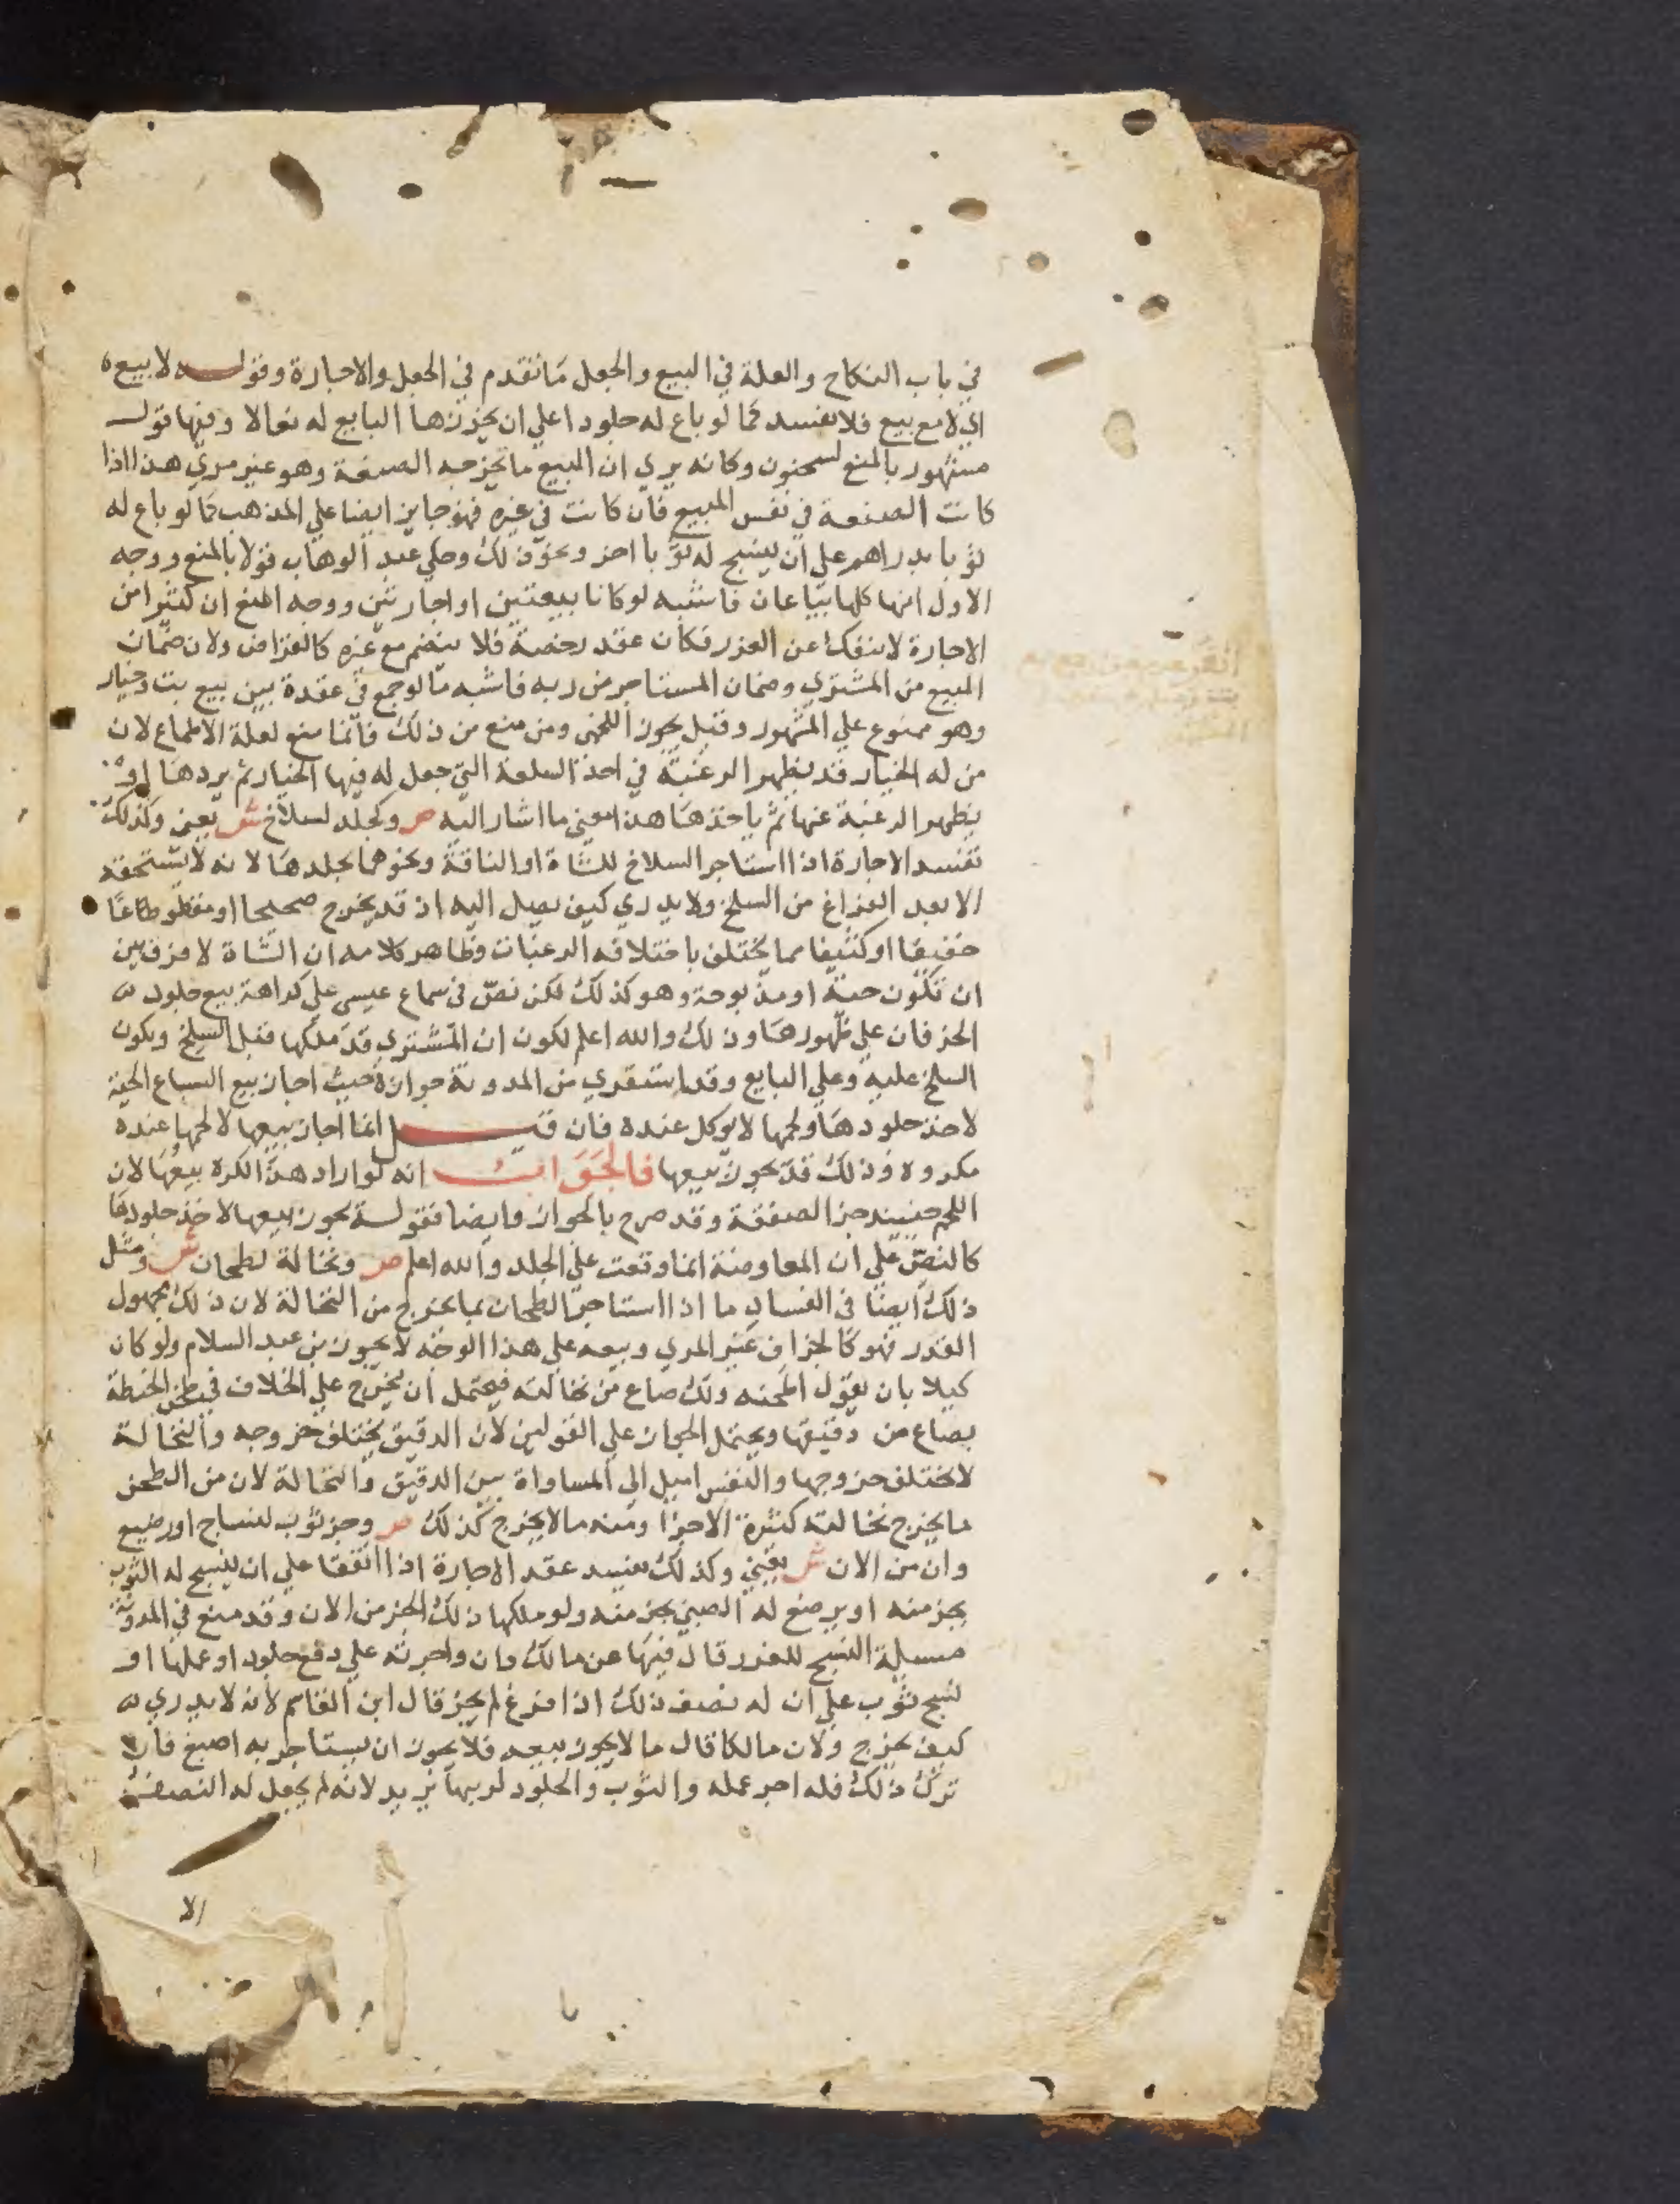 في باب النكاح والعلة في البيع والجعل ما تقدم في الجعل والاجارة وقوله لا بيع
اي لا مع بيع فلا تفسد كما لو باع له جلودا علي ان يخرزها البايع له نعالا وفيها قول
مشهور بالمنع لسحنون وكانه يري ان المبيع ما تخرجه الصنعة وهو غير مري هذا اذا
كانت الصنعة في نفس المبيع فان كانت في غيره فهو جايز ايضا علي المذهب كما لو باع له
ثوبا بدراهم علي ان ينسج له ثوبا اخر ونحو ذلك وحكي عبد الوهاب قولا بالمنع ووجه
الاول انها كلها بياعات فاشبه لو كانا بيعتين او اجارتين ووجه المنع ان كثيرا من
الاجارة لا ينفك عن الغرر فكان عقد رخصة فلا ينضم مع غيره كالقراض ولان ضمان
المبيع من المشتري وضمان المستاجر من ربه فاشبه ما لو جمع في عقدة بين بيع بت وخيار
وهو ممنوع علي المشهور وقيل يجوز اللخمي ومن منع من ذلك فانما منع لعلة الاطماع لان
من له الخيار قد يظهر الرغبة في اخذ السلعة التي جعل له فيها الخيار ثم يردها او
يظهر الرغبة عنها ثم ياخذها هذا معني ما اشار اليه ص وكجلد لسلاخ ش يعني وكذلك
تفسد الاجارة اذا استاجر السلاخ للشاة او الناقة ونحوهما بجلدها لانه لا يستحقه
الا بعد الفراغ من السلخ ولا يدري كيف يصل اليه اذ قد يخرج صحيحا او مقطوطاعا
خفيفا او كثيفا مما يختلف باختلافه الرغبات وظاهر كلامه ان الشاة لا فرق بين
ان تكون حية او مذبوحة وهو كذلك لكن نص في سماع عيسي علي كراهة بيع جلود
الخرفان علي ظهورها وذلك والله اعلم لكون ان المشتري قد ملكها قبل السلخ ويكون
السلخ عليه وعلي البايع وقد استقري من المدونة جوازه حيث اجاز بيع السباع الحية
لاخذ جلودها ولحمها لا يوكل عنده فان قيل انما اجاز بيعها لا لحمها عنده
مكروه وذلك قد يجوز بيعها فالجواب انه لو اراد هذا لكره بيعها لان
اللحم حينيذ جز الصفقة وقد صرح بالجواز وايضا فقوله يجوز بيعها لاخذ جلودها
كالنص علي ان المعاوضة انما وقعت علي الجلد والله اعلم ص ونخالة لطحان ش ومثل
ذلك ايضا في الفساد ما اذا استاجر الطحان بما يخرج من النخالة لان ذلك مجهول
القدر فهو كالجزاف غير المري وبيعه علي هذا الوجه لا يجوز بن عبد السلام ولو كان
كيلا بان يقول اطحنه ولك صاع من نخالته فيحتمل ان يخرج علي الخلاف في طحن الحنطة
بصاع من دقيقها ويحتمل الجواز علي القولين لان الدقيق يختلف خروجه والنخالة
لا يختلف خروجها والنفس اميل الي المساواة بين الدقيق والنخالة لان من الطحن
ما يخرج نخالته كثيرة الاجزا ومنه ما لا يخرج كذلك ص وجز ثوب لنساج او رضيع
وان من الان ش يعني وكذلك يفسد عقد الاجارة اذا اتفقا علي ان ينسج له الثوب
بجز منه او يرضع له الصبي بجز منه ولو ملكها ذلك الجز من الان وقد منع في المدونة
مسيلة النسج للغرر قال فيها عن مالك وان واجرته علي دفع جلود او عملها او
نسج ثوب علي ان له نصف ذلك اذا فرغ لم يجز قال ابن القاسم لانه لا يدري
كيف يخرج ولان مالكا قال ما لا يجوز بيعه فلا يجوز ان يستاجر به اصبغ فان
ترك ذلك فله اجر عمله والثوب والجلود لربها يريد لانه لم يجعل له النصف
الا